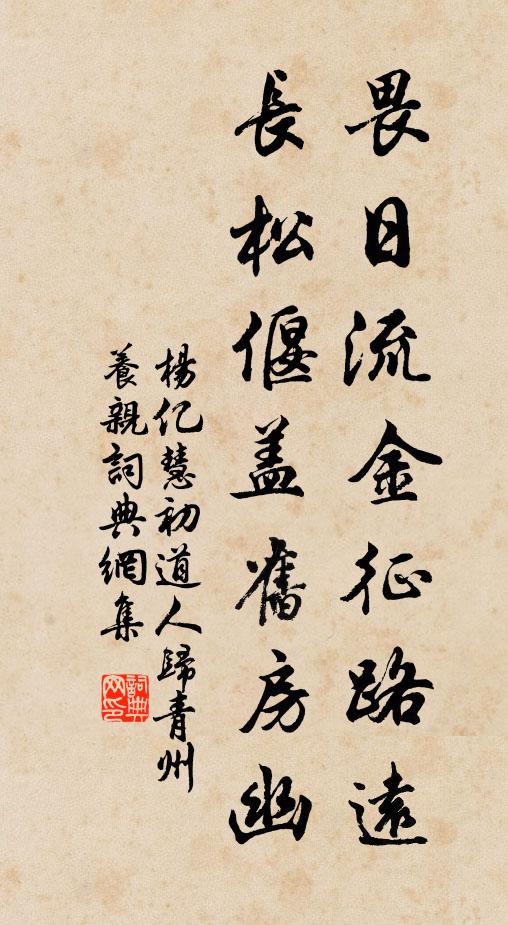 畏日流金征路遠
長松偃盖舊房幽
楊亿慧初道人歸青州
養親詞典網集
詞典网印